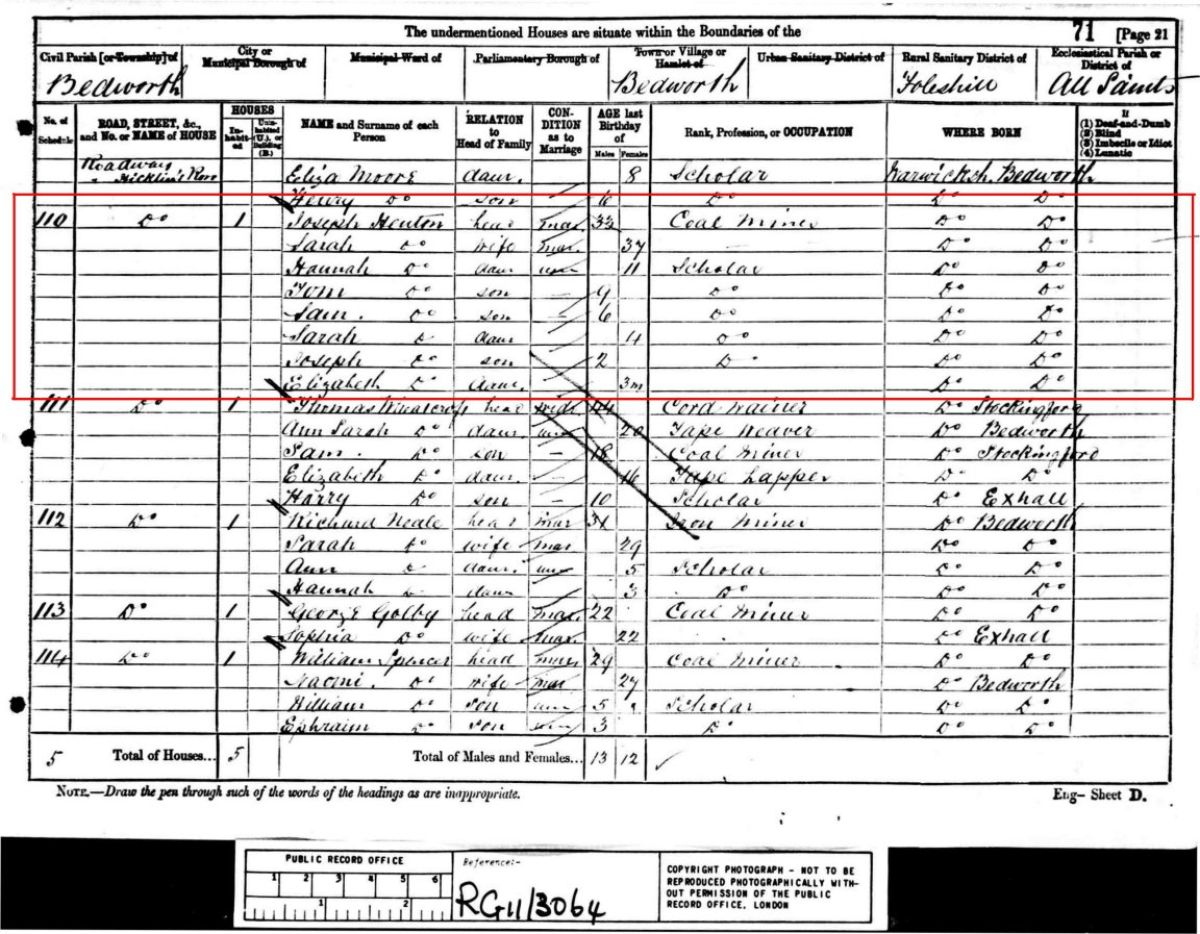 The undermentioned Houses are situate within the Boundaries of the 71 [Page 21
Civil Parish [or Township] of Bedworth
City or Municipal Borough of
Municipal Ward of
Parliamentary Borough of
Town or Village or Hamlet of Bedworth
Urban Sanitary District of
Rural Sanitary District of Foleshill
Ecclesiastical Parish or District of All Saints
No. of Schedule
ROAD, STREET, &c., and No. or NAME of HOUSE
HOUSES
Inhabited
Uninhabited (U.), or Building (B.)
NAME and Surname of each Person
RELATION to Head of Family
CONDITION as to Marriage
AGE last Birthday of
Males Females
Rank, Profession, or OCCUPATION
WHERE BORN
If
(1) Deaf-and-Dumb
(2) Blind
(3) Imbecile or Idiot
(4) Lunatic
Roadway
Hicklin's Row Eliza Moore daur. 8 Scholar Warwicksh. Bedworth
Henry Do son 6 Do Do Do
110 Do 1 Joseph Henton head mar. 33 Coal Miner Do Do
Sarah Do wife mar. 37 — Do Do
Hannah Do daur un 11 Scholar Do Do
Tom Do son — 9 Do Do Do
Sam. Do son — 6 Do Do Do
Sarah Do daur 4 Do Do Do
Joseph Do son 2 Do Do Do
Elizabeth Do daur. 3m Do Do
111 Do 1 Thomas head widr. 44 Cord wainer Do Stockingford
Ann Sarah Do daur. un 20 Tape Weaver Do Bedworth
Sam. Do son — 18 Coal Miner Do Stockingford
Elizabeth Do daur. 16 Tape Lapper Do Do
Harry Do son — 10 Scholar Do Exhall
112 Do 1 Richard Neale head mar 31 Iron Miner Do Bedworth
Sarah Do wife mar 29 Do Do
Ann Do daur. un 5 Scholar Do Do
Hannah Do daur 3 Do Do Do
113 Do 1 George Golby head mar. 22 Coal Miner Do Do
Sophia Do wife mar. 22 Do Exhall
114 Do 1 William Spencer head mar 29 Coal Miner Do Do
Naomi. Do wife mar 27 Do Bedworth
William Do son un 5 Scholar Do Do
Ephraim Do son un 3 Do Do Do
5 Total of Houses... 5 Total of Males and Females... 13 12
NOTE.—Draw the pen through such of the words of the headings as are inappropriate.
Eng- Sheet D.
PUBLIC RECORD OFFICE
1 2 3 4 5 6
1 2
Reference:-
RG11/3064
COPYRIGHT PHOTOGRAPH - NOT TO BE
REPRODUCED PHOTOGRAPHICALLY WITH-
OUT PERMISSION OF THE PUBLIC
RECORD OFFICE, LONDON